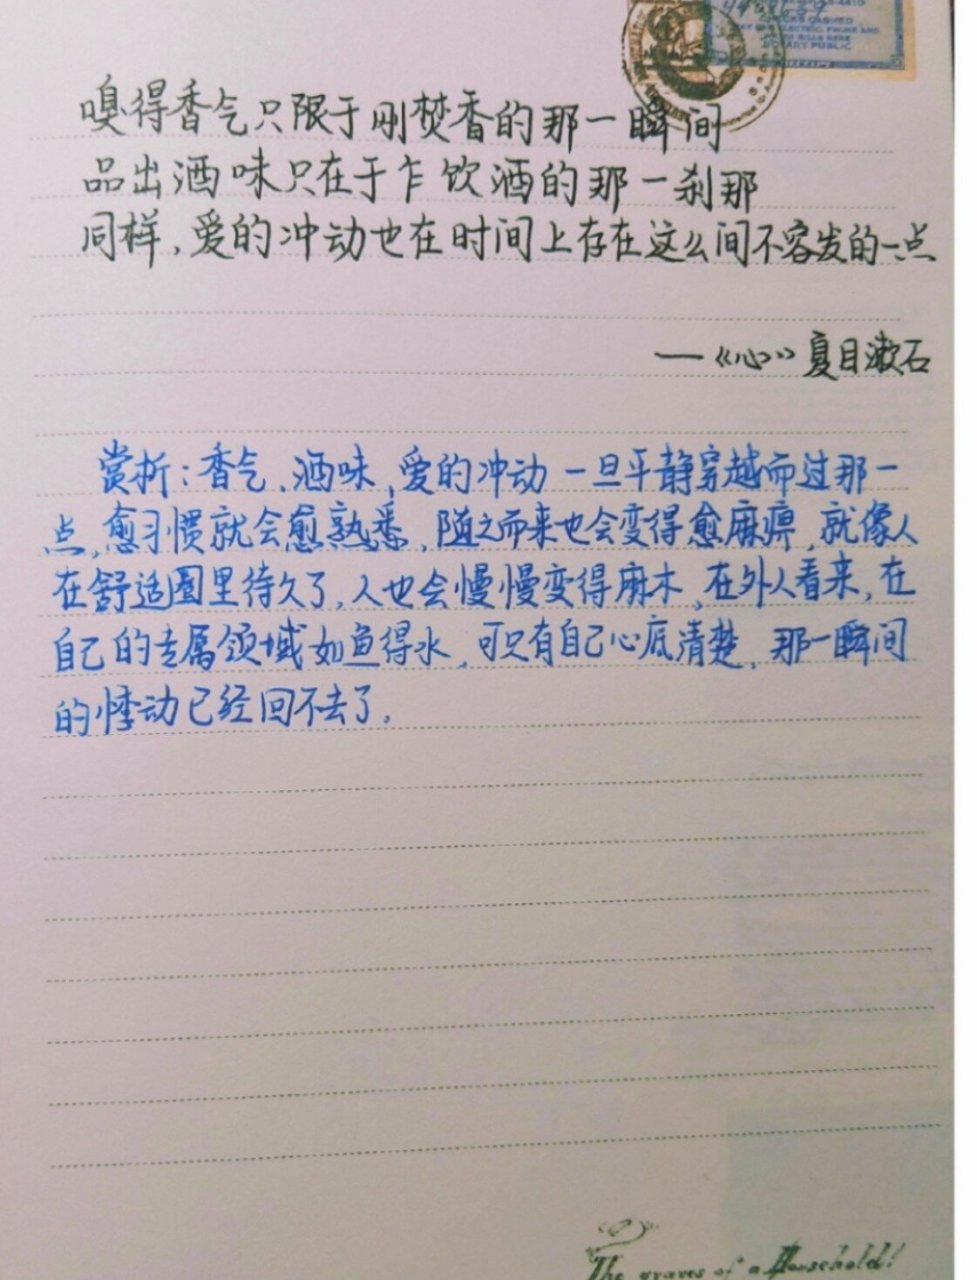 CHECKS CASHED
NOTARY PUBLIC
嗅得香气只限于刚焚香的那一瞬间
品出酒味只在于乍饮酒的那一刹那
同样,爱的冲动也在时间上存在这么间不容发的一点
—《心》夏目漱石
赏析:香气、酒味,爱的冲动一旦平静穿越而过那一
点,愈习惯就会愈熟悉,随之而来也会变得愈麻痹,就像人
在舒适圈里待久了,人也会慢慢变得麻木,在外人看来,在
自己的专属领域如鱼得水,可只有自己心底清楚,那一瞬间
的悸动已经回不去了。
The graves of a Household!